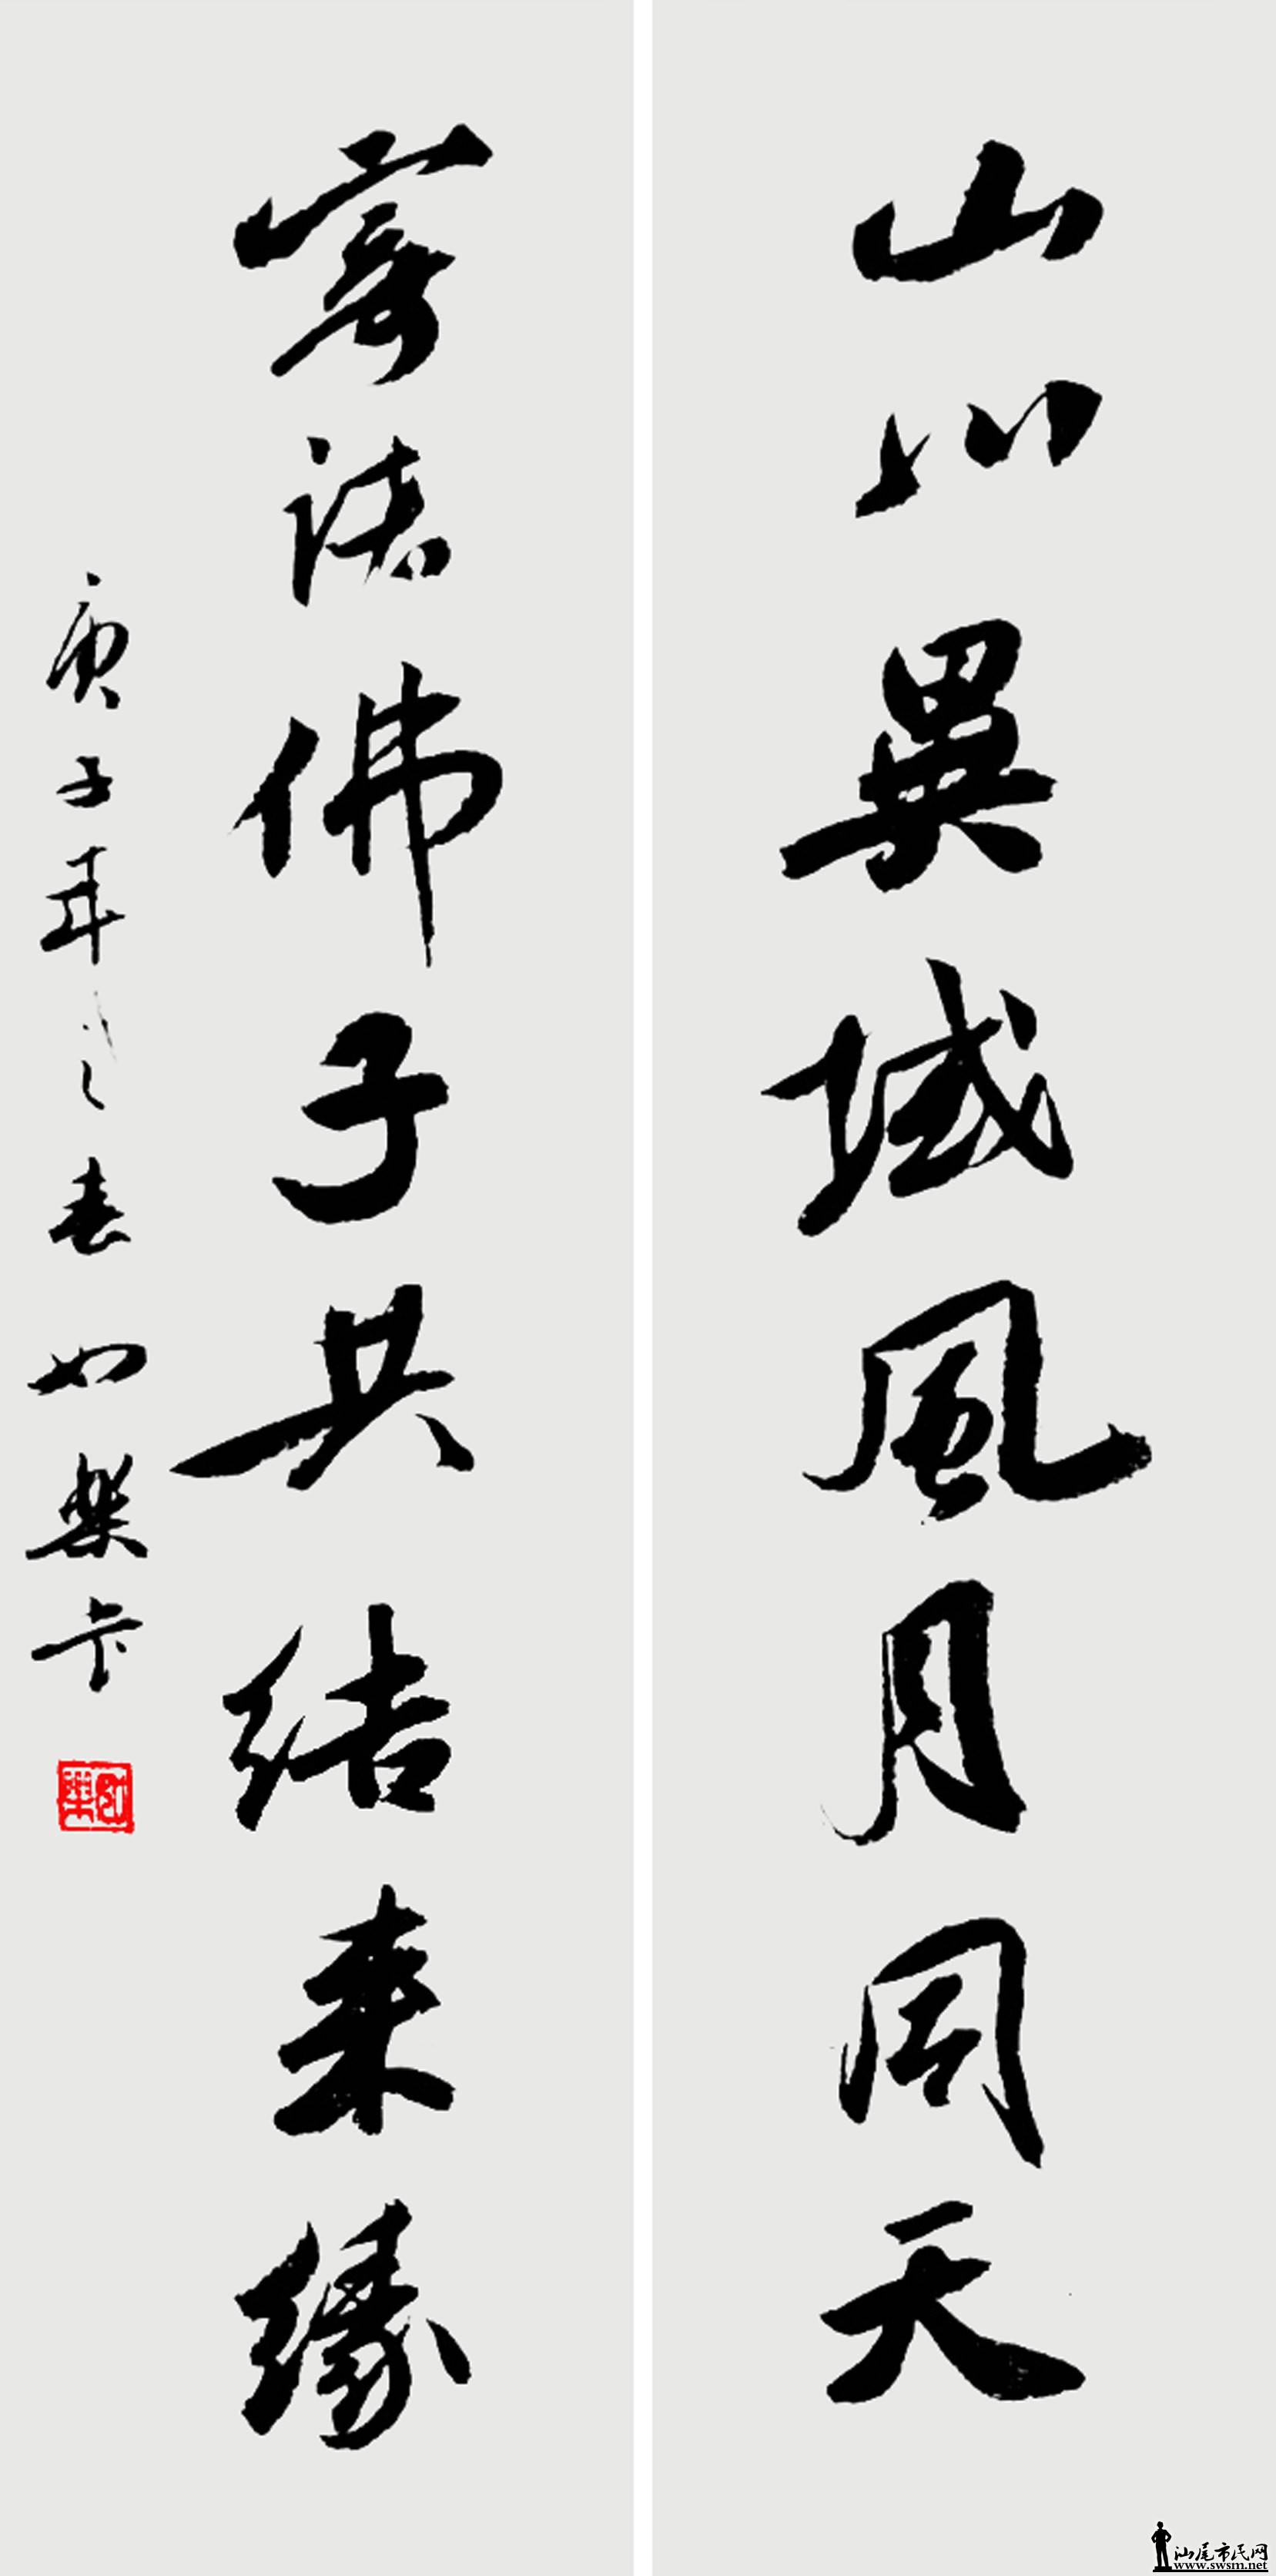 山川異域風月同天
寄諸佛子共結来緣
庚子年之春如樂卡
如樂
汕尾市民网
www.swsm.net